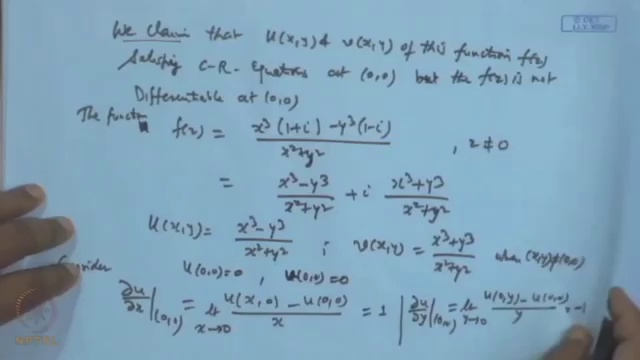 © CET
I.I.T. KGP
We claim that u(x,y) & v(x,y) of this function f(z)
Satisfying C-R- Equations at (0,0) but the f(z) is not
Differentiable at (0,0)
The funct f(z) = x³(1+i) - y³(1-i) / x²+y² , z ≠ 0
= x³-y³ / x²+y² + i x³+y³ / x²+y²
u(x,y) = x³-y³ / x²+y² ; v(x,y) = x³+y³ / x²+y² when (x,y)≠(0,0)
u(0,0)=0 , v(0,0)=0
Consider
∂u/∂x |(0,0) = lt x→0 u(x,0) - u(0,0) / x = 1 | ∂u/∂y |(0,0) = lt y→0 u(0,y) - u(0,0) / y = -1
NPTEL